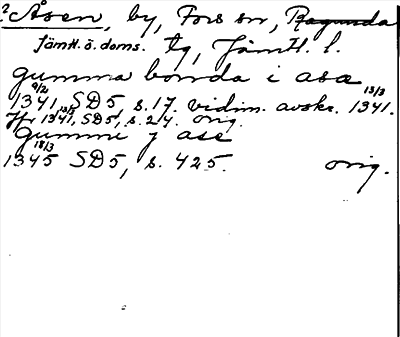 ? Åsen, by, Fors sn, Ragunda
Jämtl. ö. doms. tg, Jämtl. l.
gumma bonda i asa
9/2 13/3
1341, SD5, s. 17. vidim. avskr. 1341.
Jfr 13/3 1341, SD5, s. 24. orig.
Gummi j ase
18/3
1345 SD5, s. 425. orig.